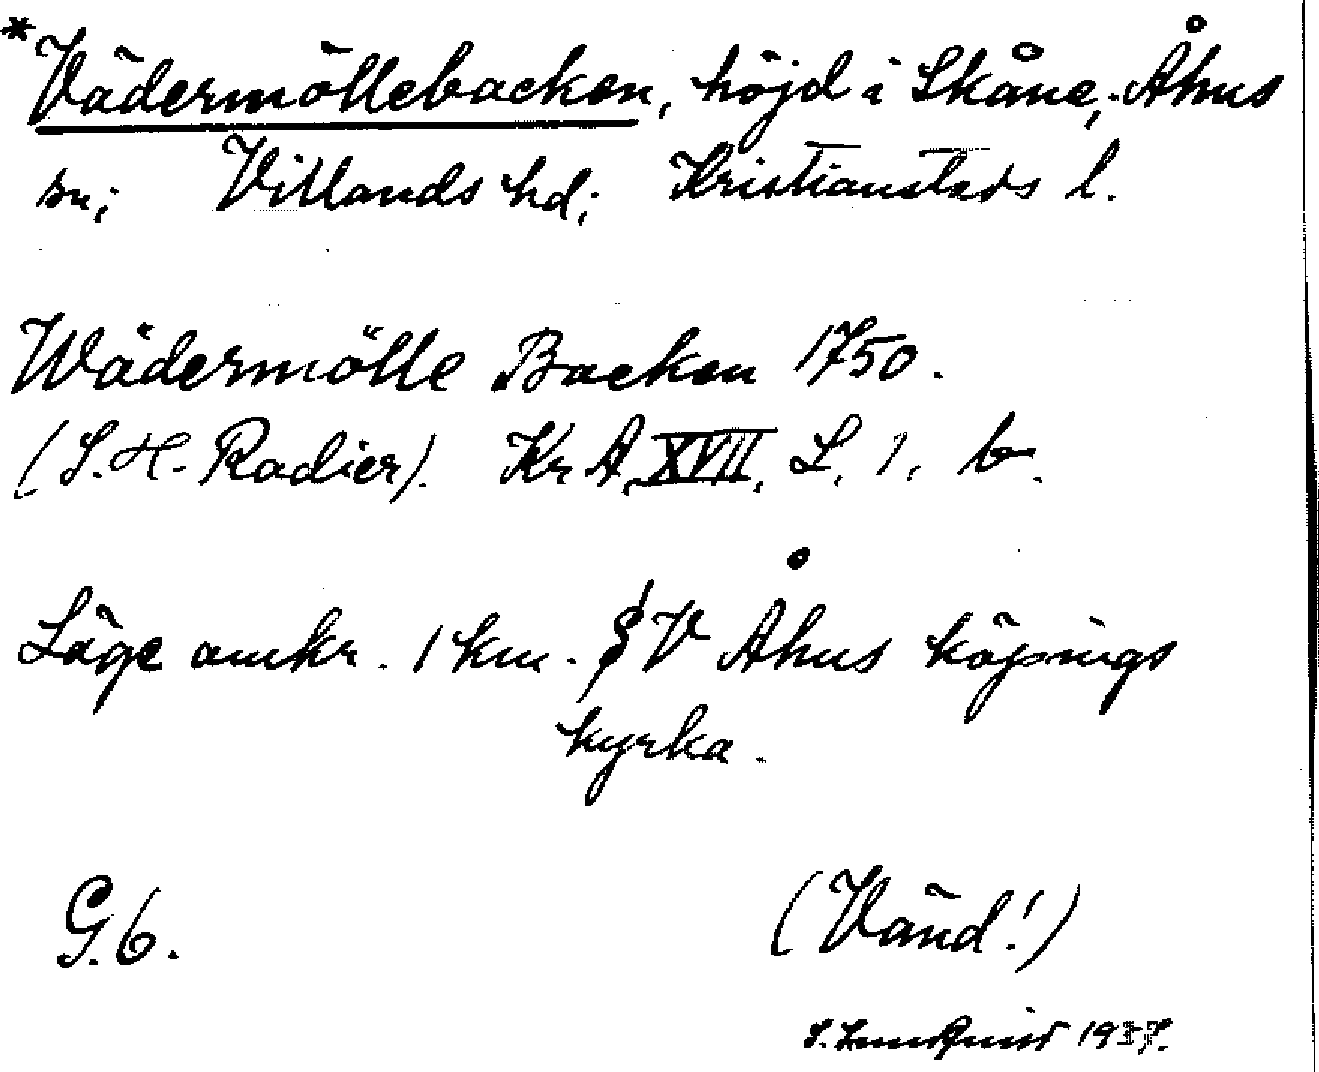 *Vädermöllebacken, höjd i Skåne, Åhus
sn; Villands hd; Kristianstads l.
Wädermölle Backen 1750.
(S. H. Radier). Kr A, XVII, L, 1, b.
Läge omkr. 1 km. V Åhus köpings
kyrka.
G. b.
(Vänd!)
S. Lundquist 1937.